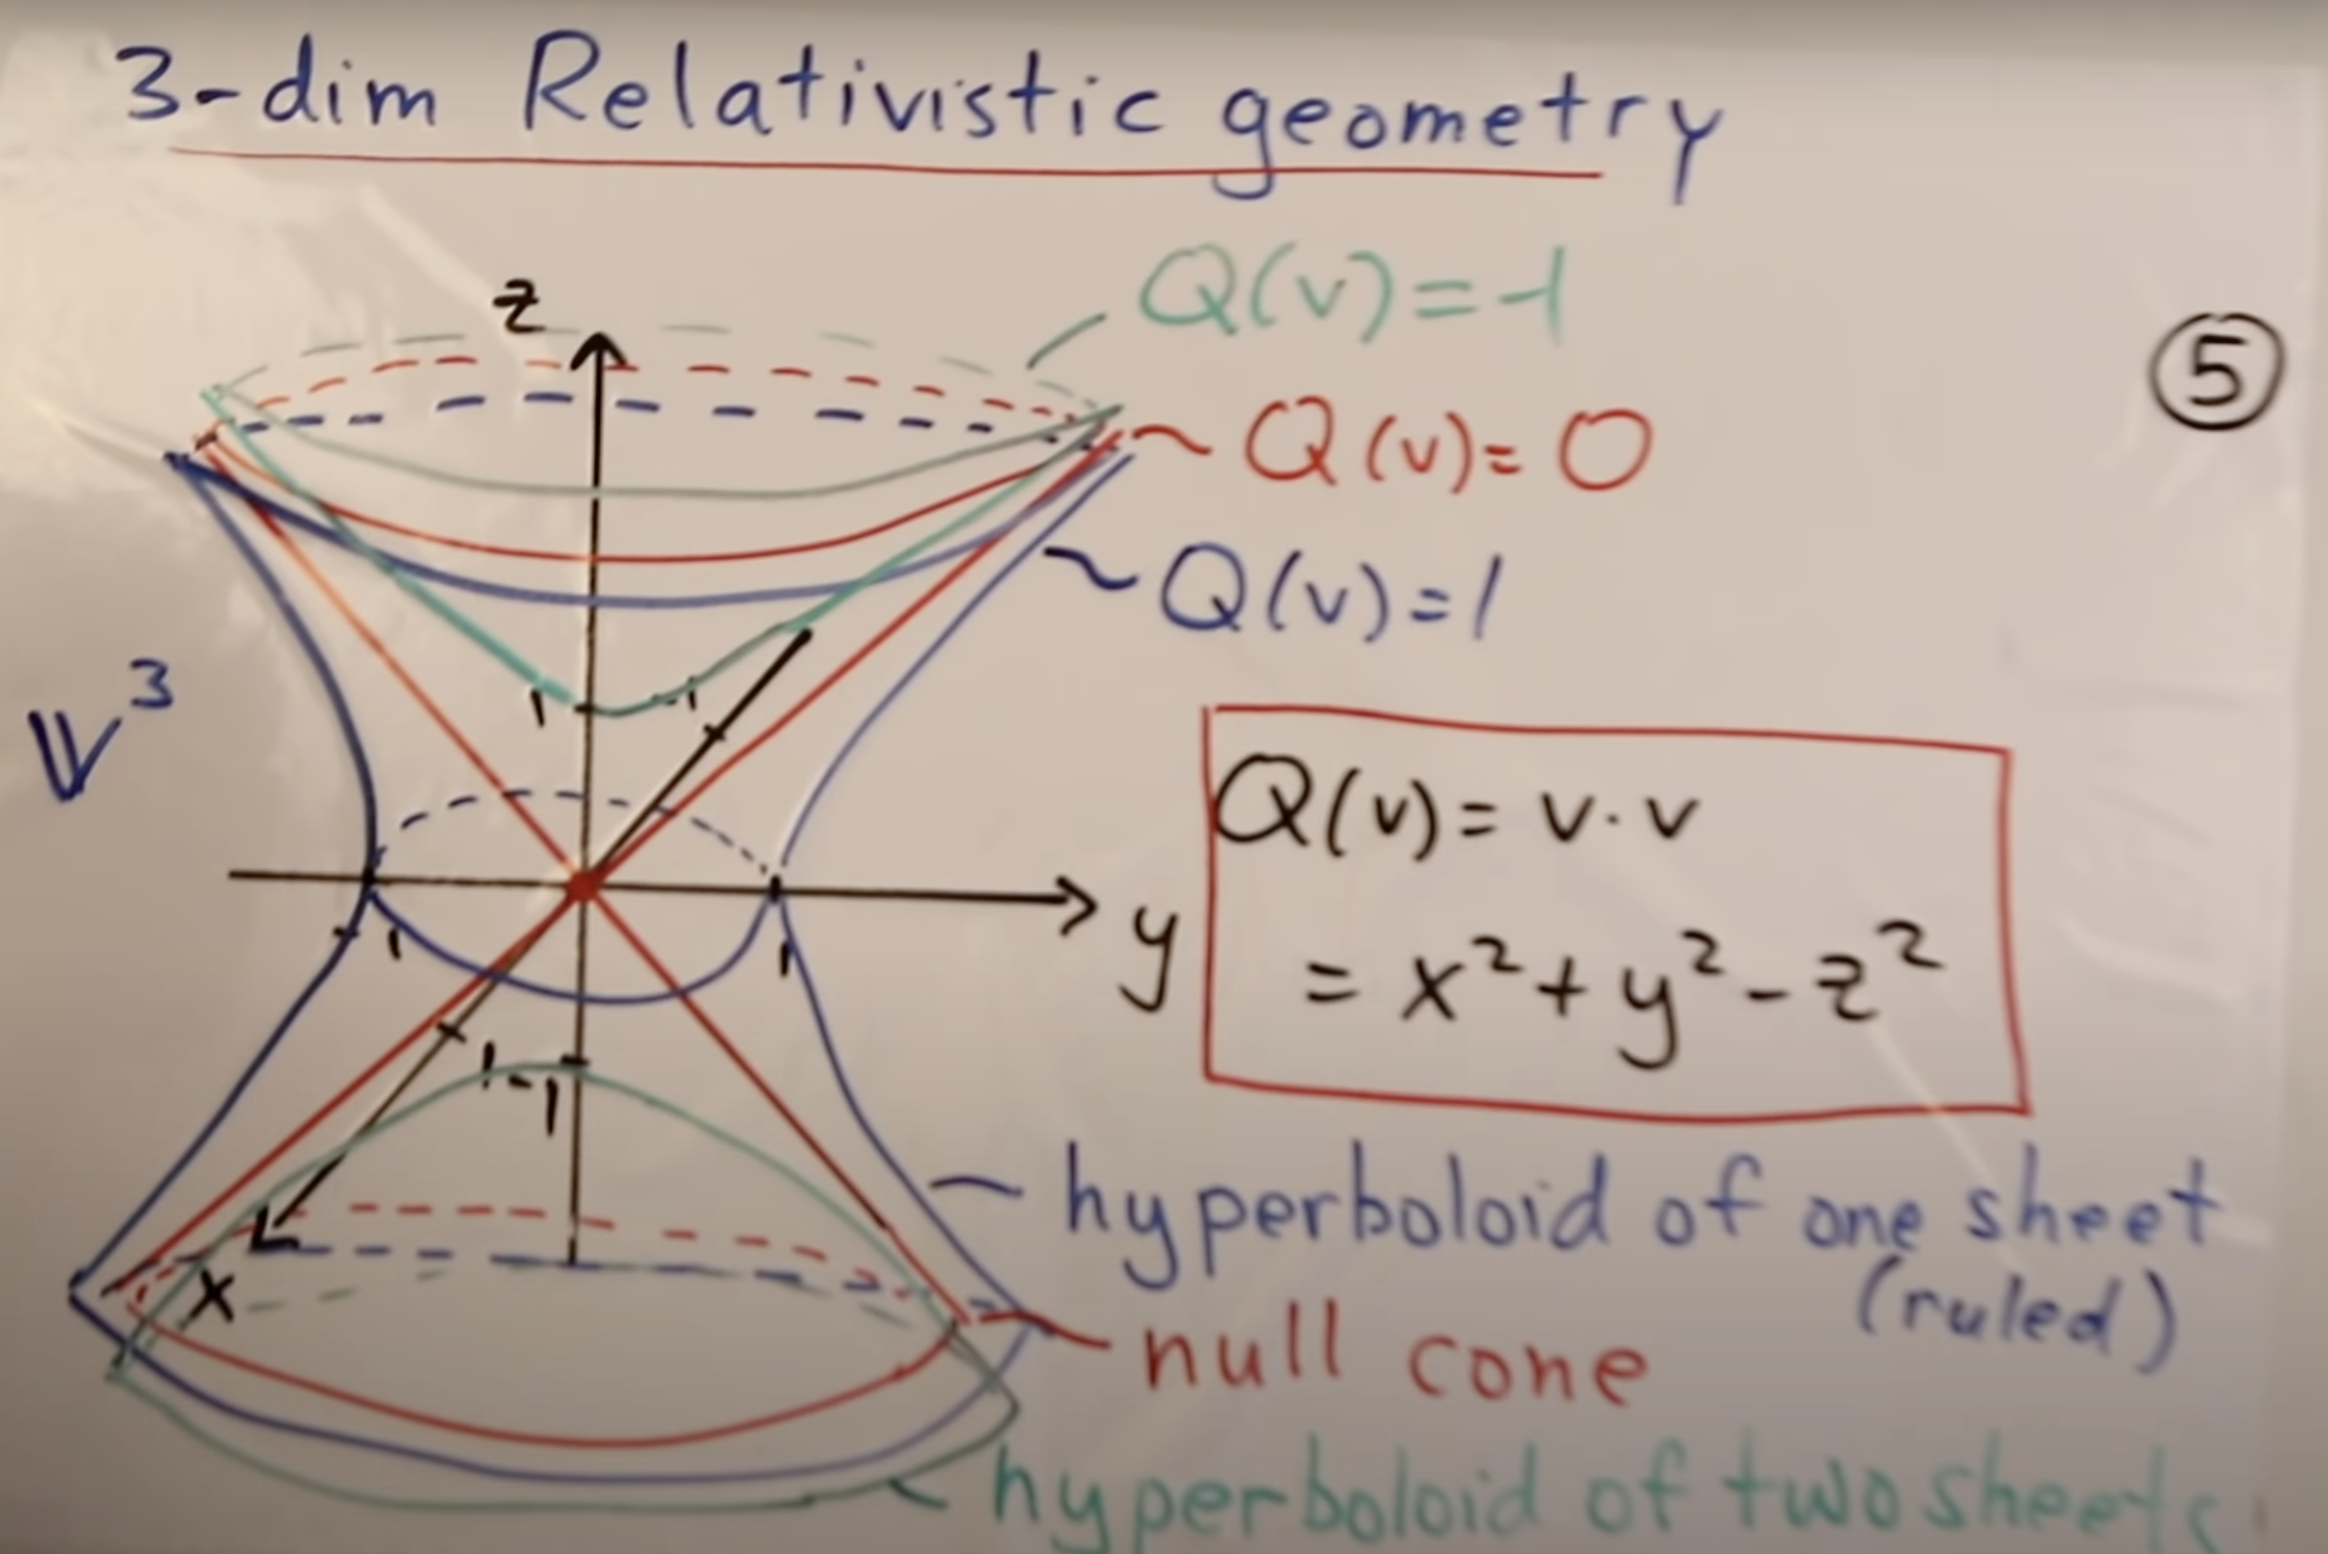 3-dim Relativistic geometry
z
Q(v)=-1
5
Q(v)=0
Q(v)=1
𝕍³
1
-1
Q(v)= v·v
= x²+y²-z²
y
-1
1
1
-1
x
hyperboloid of one sheet
(ruled)
null cone
hyperboloid of two sheets